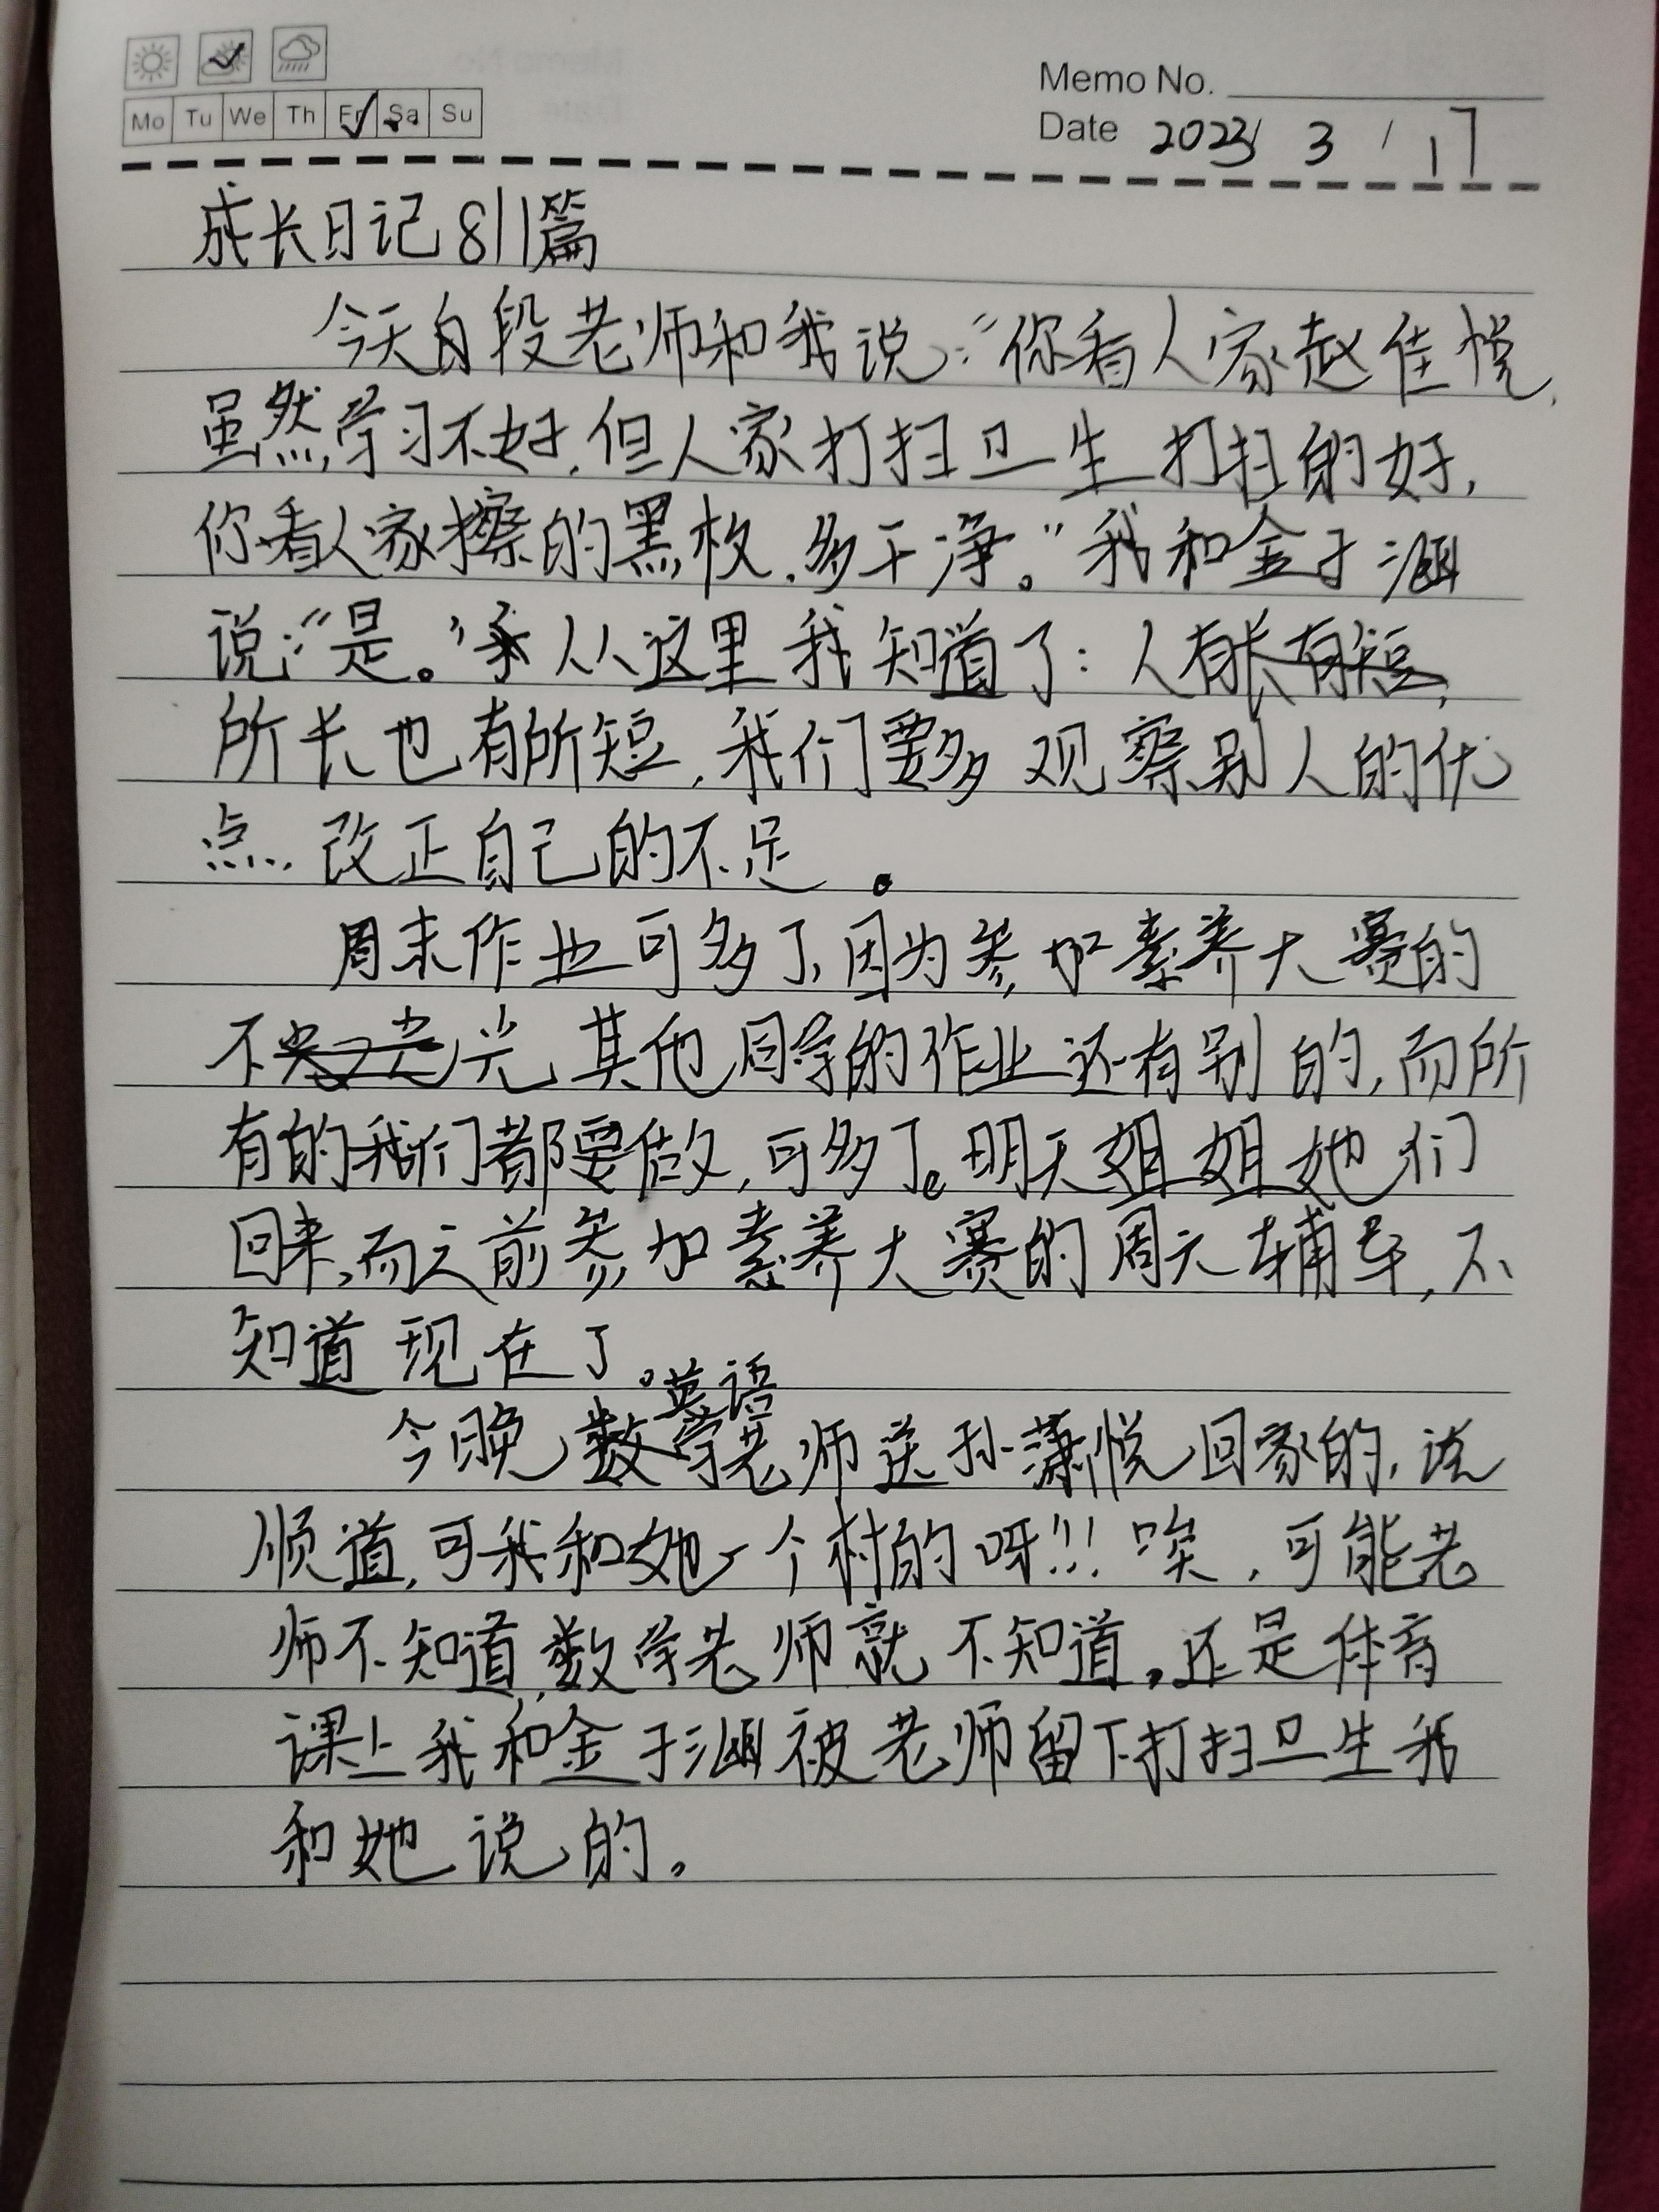 Memo No.
Mo Tu We Th Fr Sa Su
Date 2023/ 3 / 17
成长日记811篇
今天自段老师和我说:“你看人家赵佳悦,
虽然,学习不好,但人家打扫卫生打扫的好,
你看人家擦的黑枚,多干净。”我和金于涵
说:“是。”从从这里我知道了:人有长有短,
所长也有所短,我们要多观察别人的优
点,改正自己的不足。
周末作业可多了,因为参加素养大赛的
不光其他同学的作业还有别的,而所
有的我们都要做,可多了。明天姐姐她们
回来,而之前参加素养大赛的周六辅导,不
知道现在了。
英语
今晚数学老师送孙潇悦回家的,说
顺道,可我和她一个村的呀!!!唉,可能老
师不知道,数学老师就不知道,还是体育
课上我和金于涵被老师留下打扫卫生我
和她说的。